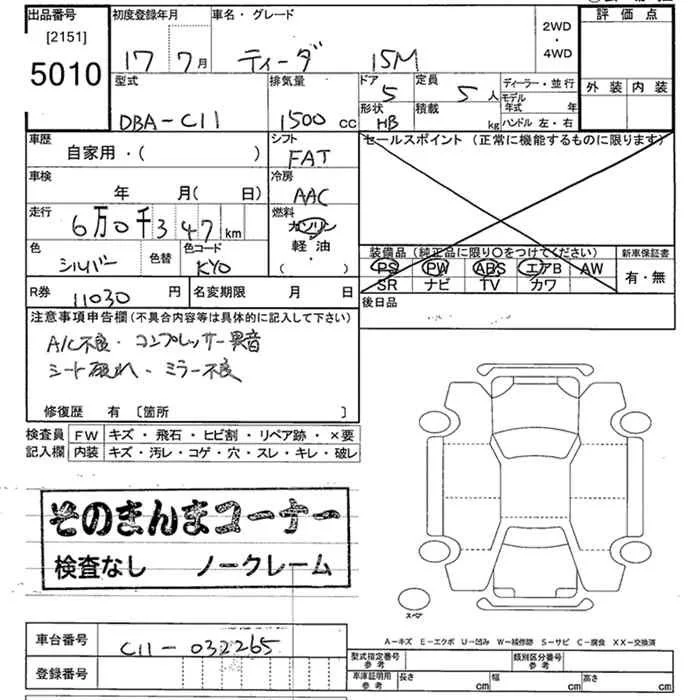 出品番号 初度登録年月 車名・グレード 2WD・4WD 評価点
[2151]
5010 17 7月 ティーダ 15M
外装 内装
型式 排気量 ドア 5 定員 5人 ディーラー・並行
モデル年式 年
DBA-C11 1500cc 形状 HB 積載 kg ハンドル 左・右
車歴 自家用・( ) シフト FAT セールスポイント (正常に機能するものに限ります)
車検 年 月( 日) 冷房 AAC
走行 6万0千347km 燃料 ガソリン 軽油 ・ ( )
色 シルバー 色替 色コード KY0
装備品 (純正品に限り○をつけてください) 新車保証書
PS PW ABS エアB AW 有・無
SR ナビ TV カワ
R券 11030 円 名変期限 月 日 後日品
注意事項申告欄 (不具合内容等は具体的に記入して下さい)
A/C不良・コンプレッサー異音
シート破れ・ミラー不良
修復歴 有 [箇所 ]
検査員 FW キズ・飛石・ヒビ割・リペア跡・×要
記入欄 内装 キズ・汚レ・コゲ・穴・スレ・キレ・破レ
そのまんまコーナー
検査なし ノークレーム
スペア
A-キズ E-エクボ U-凹み W-補修跡 S-サビ C-腐食 XX-交換済
車台番号 C11-032265
型式指定番号 参考 類別区分番号 参考
登録番号
車庫証明用 参考 長さ cm 幅 cm 高さ cm